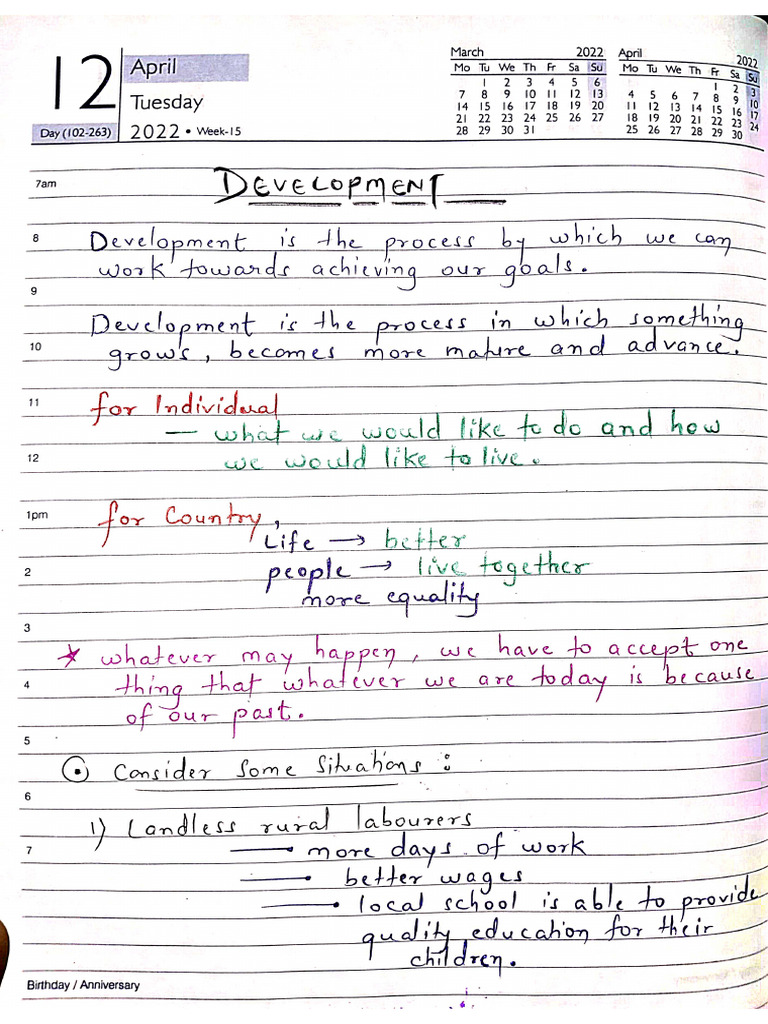 12
April
Tuesday
Day (102-263)
2022 • Week-15
March 2022
Mo Tu We Th Fr Sa Su
1 2 3 4 5 6
7 8 9 10 11 12 13
14 15 16 17 18 19 20
21 22 23 24 25 26 27
28 29 30 31
April 2022
Mo Tu We Th Fr Sa Su
1 2 3
4 5 6 7 8 9 10
11 12 13 14 15 16 17
18 19 20 21 22 23 24
25 26 27 28 29 30
7am DEVELOPMENT
8 Development is the process by which we can
work towards achieving our goals.
9
Development is the process in which something
10 grows, becomes more mature and advance.
11 for Individual
— what we would like to do and how
12 we would like to live.
1pm for Country,
Life → better
2 people → live together
more equality
3
* whatever may happen, we have to accept one
4 thing that whatever we are today is because
of our past.
5
⊙ Consider Some Situations :
6
1) Landless rural labourers
7 — more days of work
— better wages
— local school is able to provide
quality education for their
children.
Birthday / Anniversary